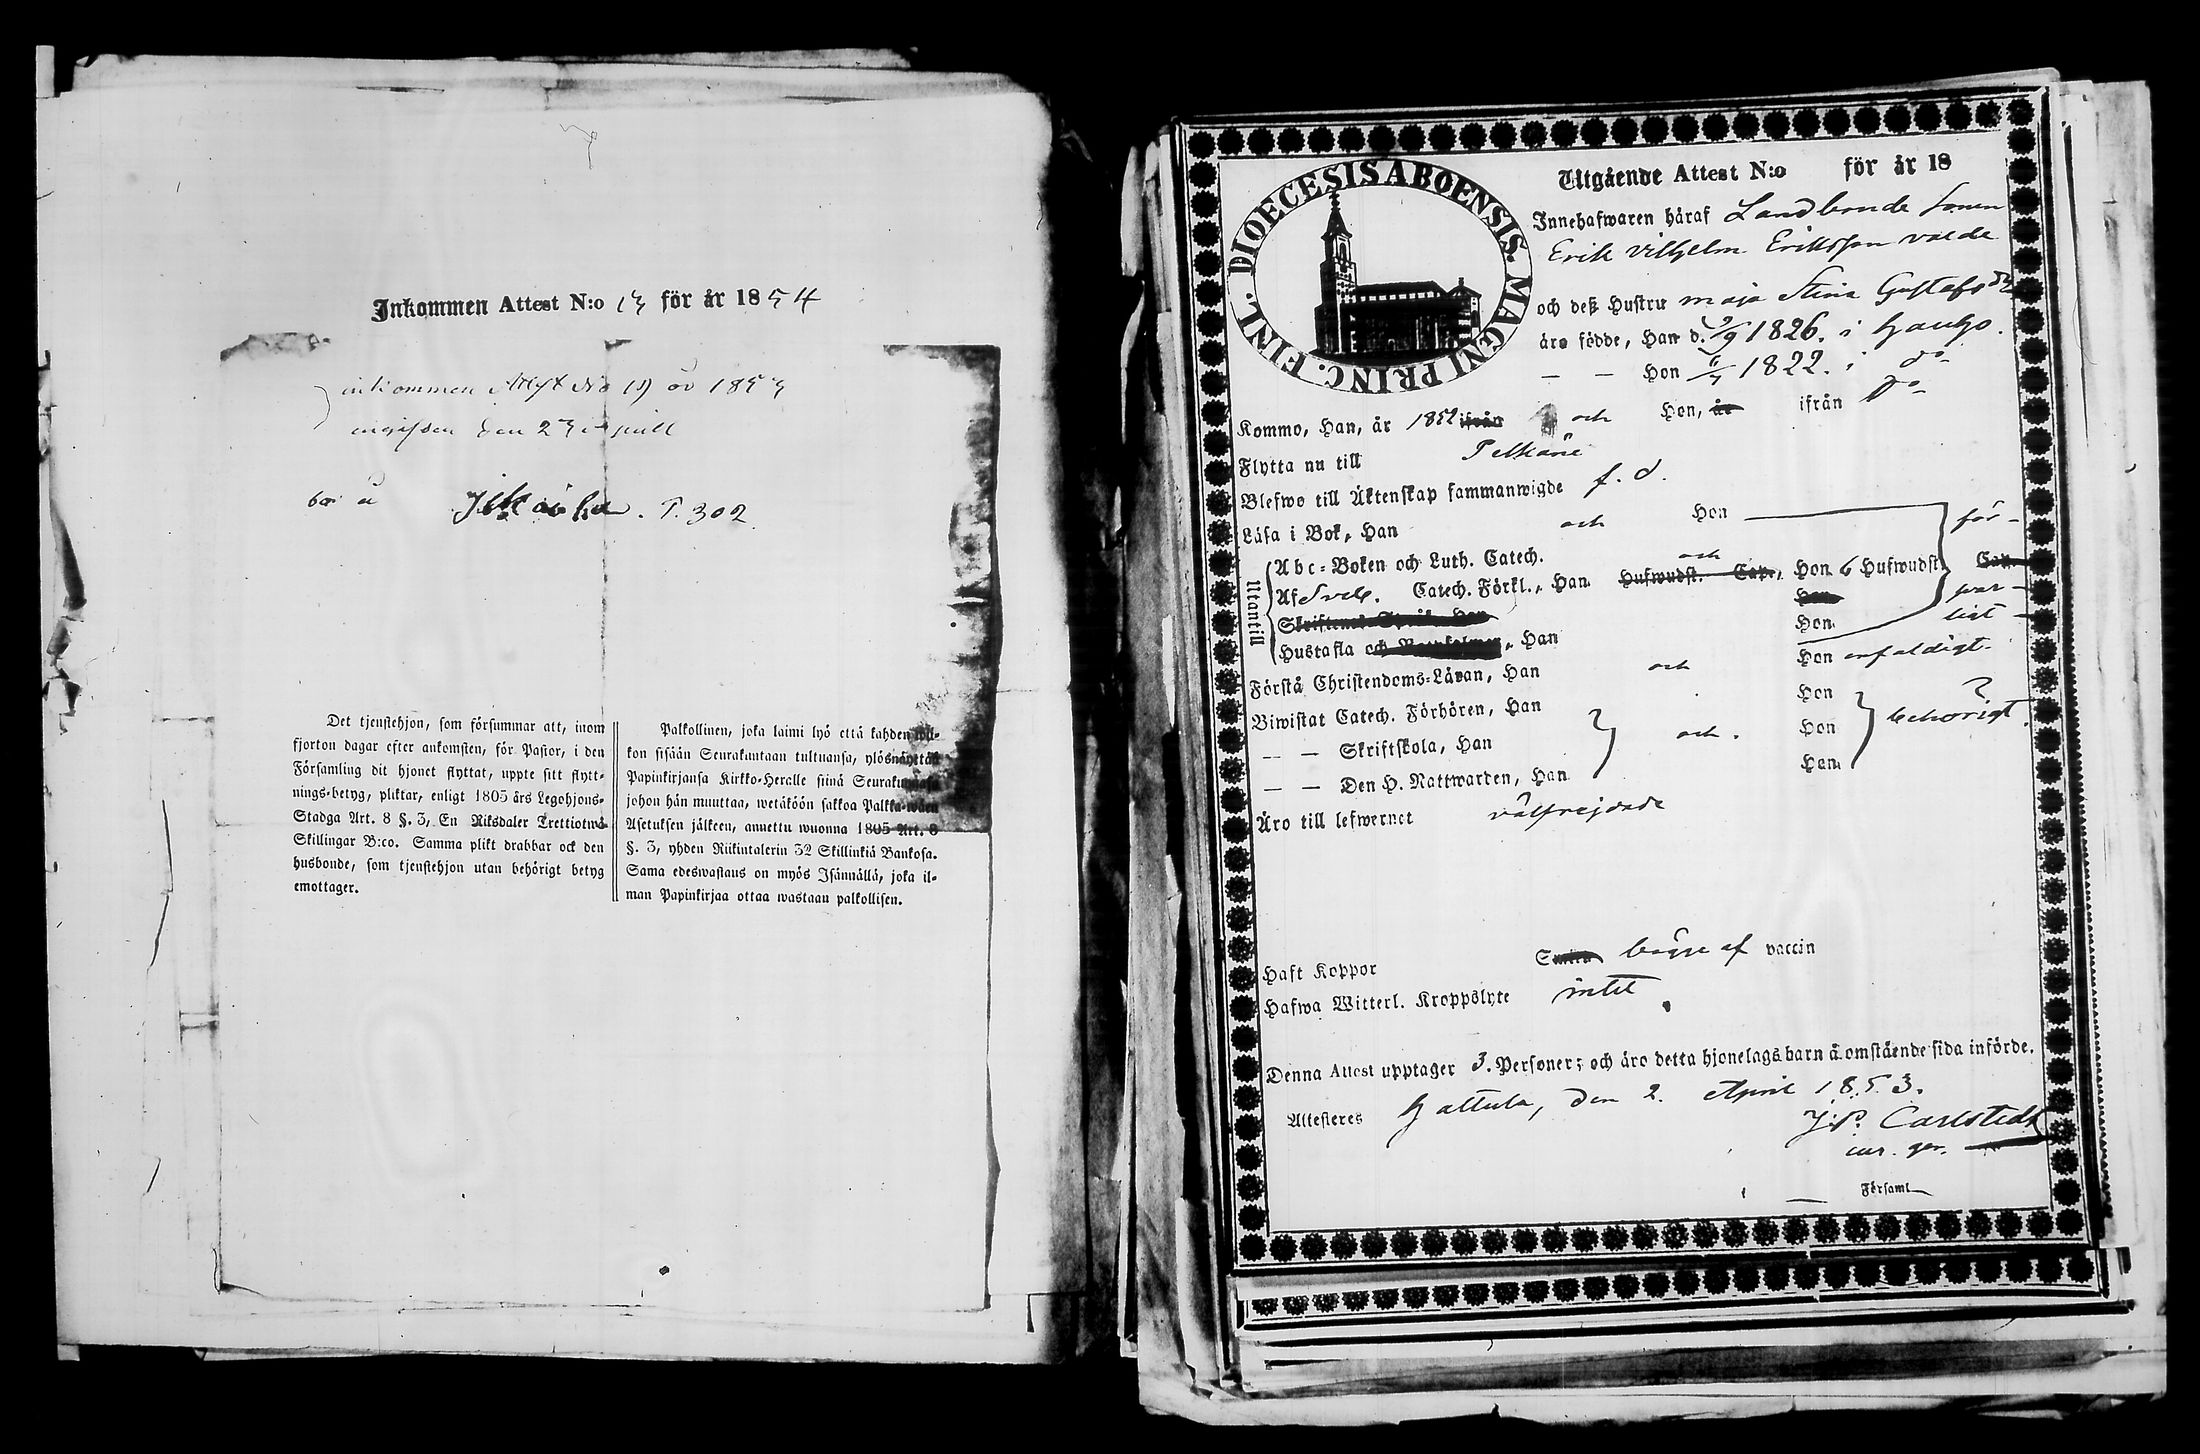 Inkommen Attest N:o 13 för år 1854
inkommen Attest No 19 år 1853
ingifven den 23 april
bor å . P. 302.
Det tjenstehjon, som försummar att, inom
fjorton dagar efter ankomsten, för Pastor, i den
Församling dit hjonet flyttat, uppte sitt flytt-
nings-betyg, pliktar, enligt 1805 års Legohjons-
Stadga Art. 8 §. 3, En Riksdaler Trettiotwå
Skillingar B:co. Samma plikt drabbar ock den
husbonde, som tjenstehjon utan behörigt betyg
emottager.
Palkollinen, joka laimi lyö että kahden wii-
kon sisään Seurakuntaan tultuansa, ylösnäyttää
Papinkirjansa Kirkko-Heralle siinä Seurakunnasa
johon hän muuttaa, wetäköön sakkoa Palkka-wäen
Asetuksen jälkeen, annettu wuonna 1805 Art. 8
§. 3, yhden Riikintalerin 32 Skillinkiä Bankosa.
Sama edeswastaus on myös Isännällä, joka il-
man Papinkirjaa ottaa wastaan palkollisen.
DIOECESIS ABOENSIS. MAGNI PRINC. FINL.
Utgående Attest N:o för år 18
Innehafwaren häraf Landbonde sonen
Erik Vilhelm Eriksson
och deß Hustru Maja Stina Gustafsdr
äro födde, Han d. 5/9 1826. i Hauho.
— — Hon 6/7 1822. i do
Kommo, Han, år 1852 ifrån och Hon, år ifrån do
Flytta nu till Pelkäne
Blefwo till Äktenskap sammanwigde f. d.
Läsa i Bok, Han och Hon för-
Utantill
Abc-Boken och Luth. Catech.
Af Sveb. Catech. Förkl., Han Hufwudst. Cap., och Hon 6 Hufwudst. Cap. svar-
Skriftenes Språk Han Hon ligt
Hustafla och , Han Hon
Förstå Christendoms-Läran, Han och Hon enfaldigt.
Biwistat Catech. Förhören, Han Hon
— — Skriftskola, Han och Hon behörigt.
— — Den H. Nattwarden, Han Hon
Äro till lefwernet välfrejdade
Haft Koppor Smitta begge af vaccin
Hafwa Witterl. Kroppslyte intet
Denna Attest upptager 3. Personer; och äro detta hjonelags barn å omstående sida införde.
Attesteres Hattula, den 2. April 1853.
J. P. Carlstedt
Församl